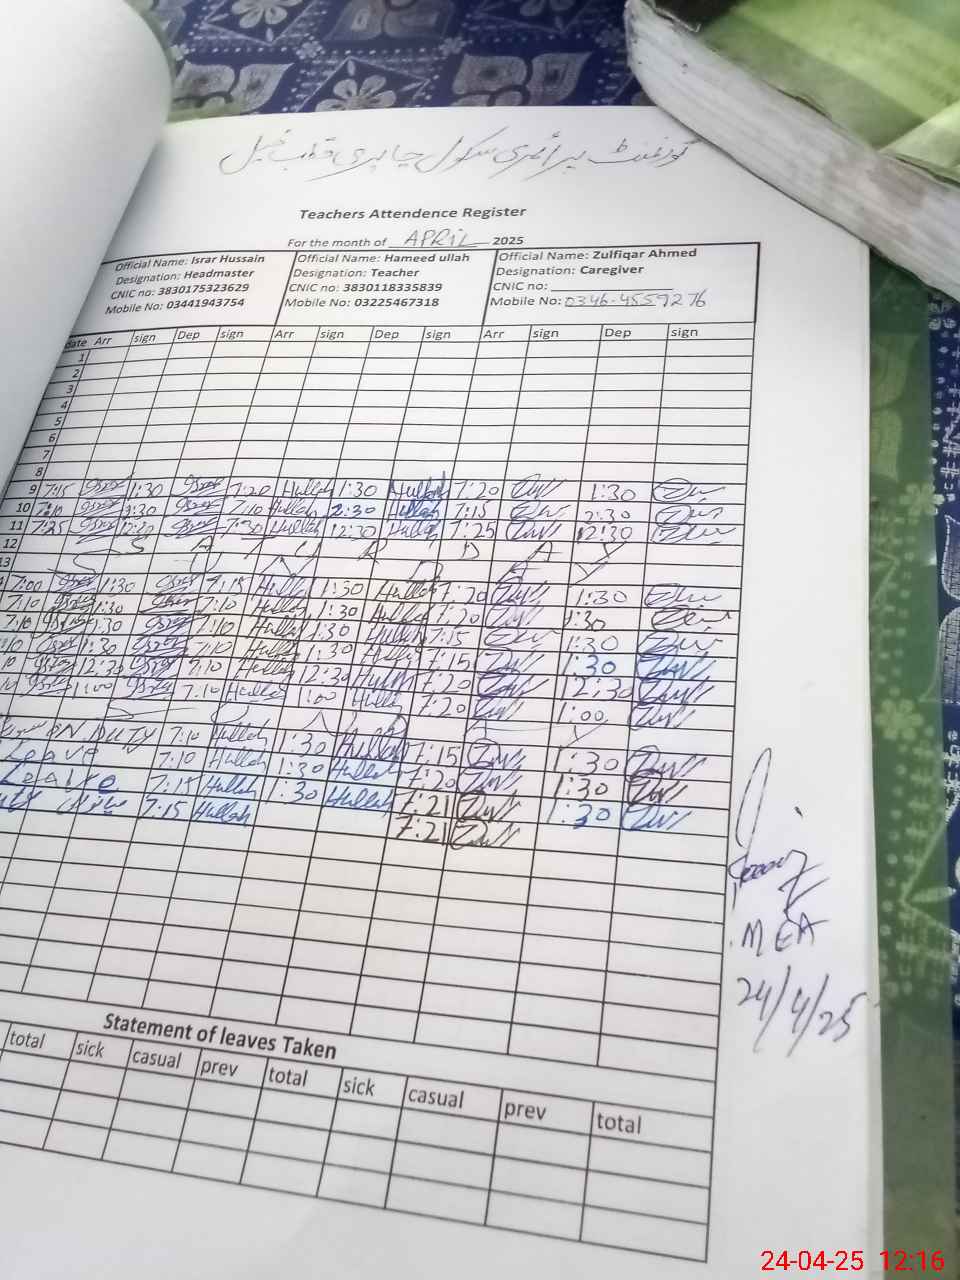 گورنمنٹ پرائمری سکول جابری قطب خیل
Teachers Attendence Register
For the month of APRIL 2025
Official Name: Israr Hussain Official Name: Hameed ullah Official Name: Zulfiqar Ahmed
Designation: Headmaster Designation: Teacher Designation: Caregiver
CNIC no: 3830175323629 CNIC no: 3830118335839 CNIC no:
Mobile No: 03441943754 Mobile No: 03225467318 Mobile No: 0346-4559276
date Arr sign Dep sign Arr sign Dep sign Arr sign Dep sign
1
2
3
4
5
6
7
8
9 7:15 1:30 7:20 Hullah 1:30 Hullah 7:20 Zull 1:30
10 7:10 7:10 Hullah 2:30 Hullah 7:15 2:30
11 7:25 12:30 7:30 Hullah 12:30 Hullah 7:25 12:30
12 S A T U R D A Y
13 S U N D A Y
7:00 1:30 7:15 Hullah 1:30 Hullah 7:20 Zull 1:30
7:10 1:30 7:10 Hullah 1:30 Hullah 7:20 Zull 1:30
7:10 1:30 7:10 Hullah 1:30 Hullah 7:15 1:30
1:30 7:10 Hullah 1:30 Hullah 7:15 Zull 1:30 Zull
12:30 7:10 Hullah 12:30 Hullah 7:20 Zull 12:30 Zull
1:00 7:10 Hullah 1:00 Hullah 7:20 Zull 1:00 Zull
S U N D A Y
ON DUTY 7:10 Hullah 1:30 Hullah 7:15 Zull 1:30 Zull
Leave 7:10 Hullah 1:30 Hullah 7:20 Zull 1:30 Zull
Leave 7:15 Hullah 1:30 Hullah 7:21 Zull 1:30 Zull
7:15 Hullah 7:21 Zull
MEA
24/4/25
Statement of leaves Taken
total sick casual prev total sick casual prev total
24-04-25 12:16